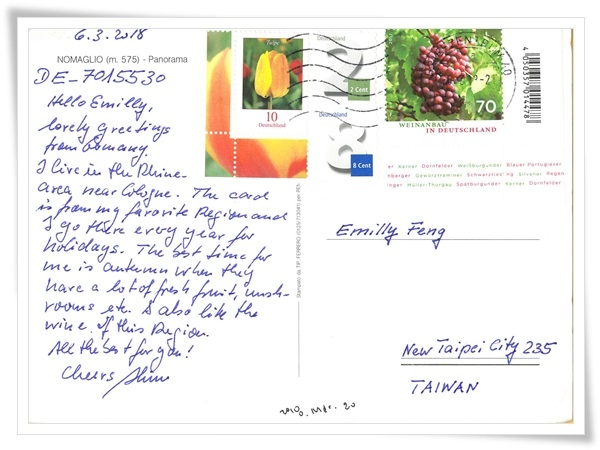 6.3.2018
NOMAGLIO (m. 575) - Panorama
DE-7015530
Hello Emilly,
lovely greetings
from Germany.
I live in the Rhine-
area near Cologne. The card
is from my favorite Region and
I go there every year for
holidays. The best time for
me is autumn when they
have a lot of fresh fruit, mush-
rooms etc. I also like the
wine of this Region.
All the best for you!
Cheers
Tulpe
10
Deutschland
Deutschland
2 Cent
Deutschland
8 Cent
70
WEINANBAU
IN DEUTSCHLAND
4050357014478
er Kerner Dornfelder Weißburgunder Blauer Portugieser
nberger Gewürztraminer Schwarzriesling Silvaner Regen
inger Müller-Thurgau Spätburgunder Kerner Dornfelder
Stampato da TIP. FERRERO
Emilly Feng
New Taipei City 235
TAIWAN
2018. Mar. 20